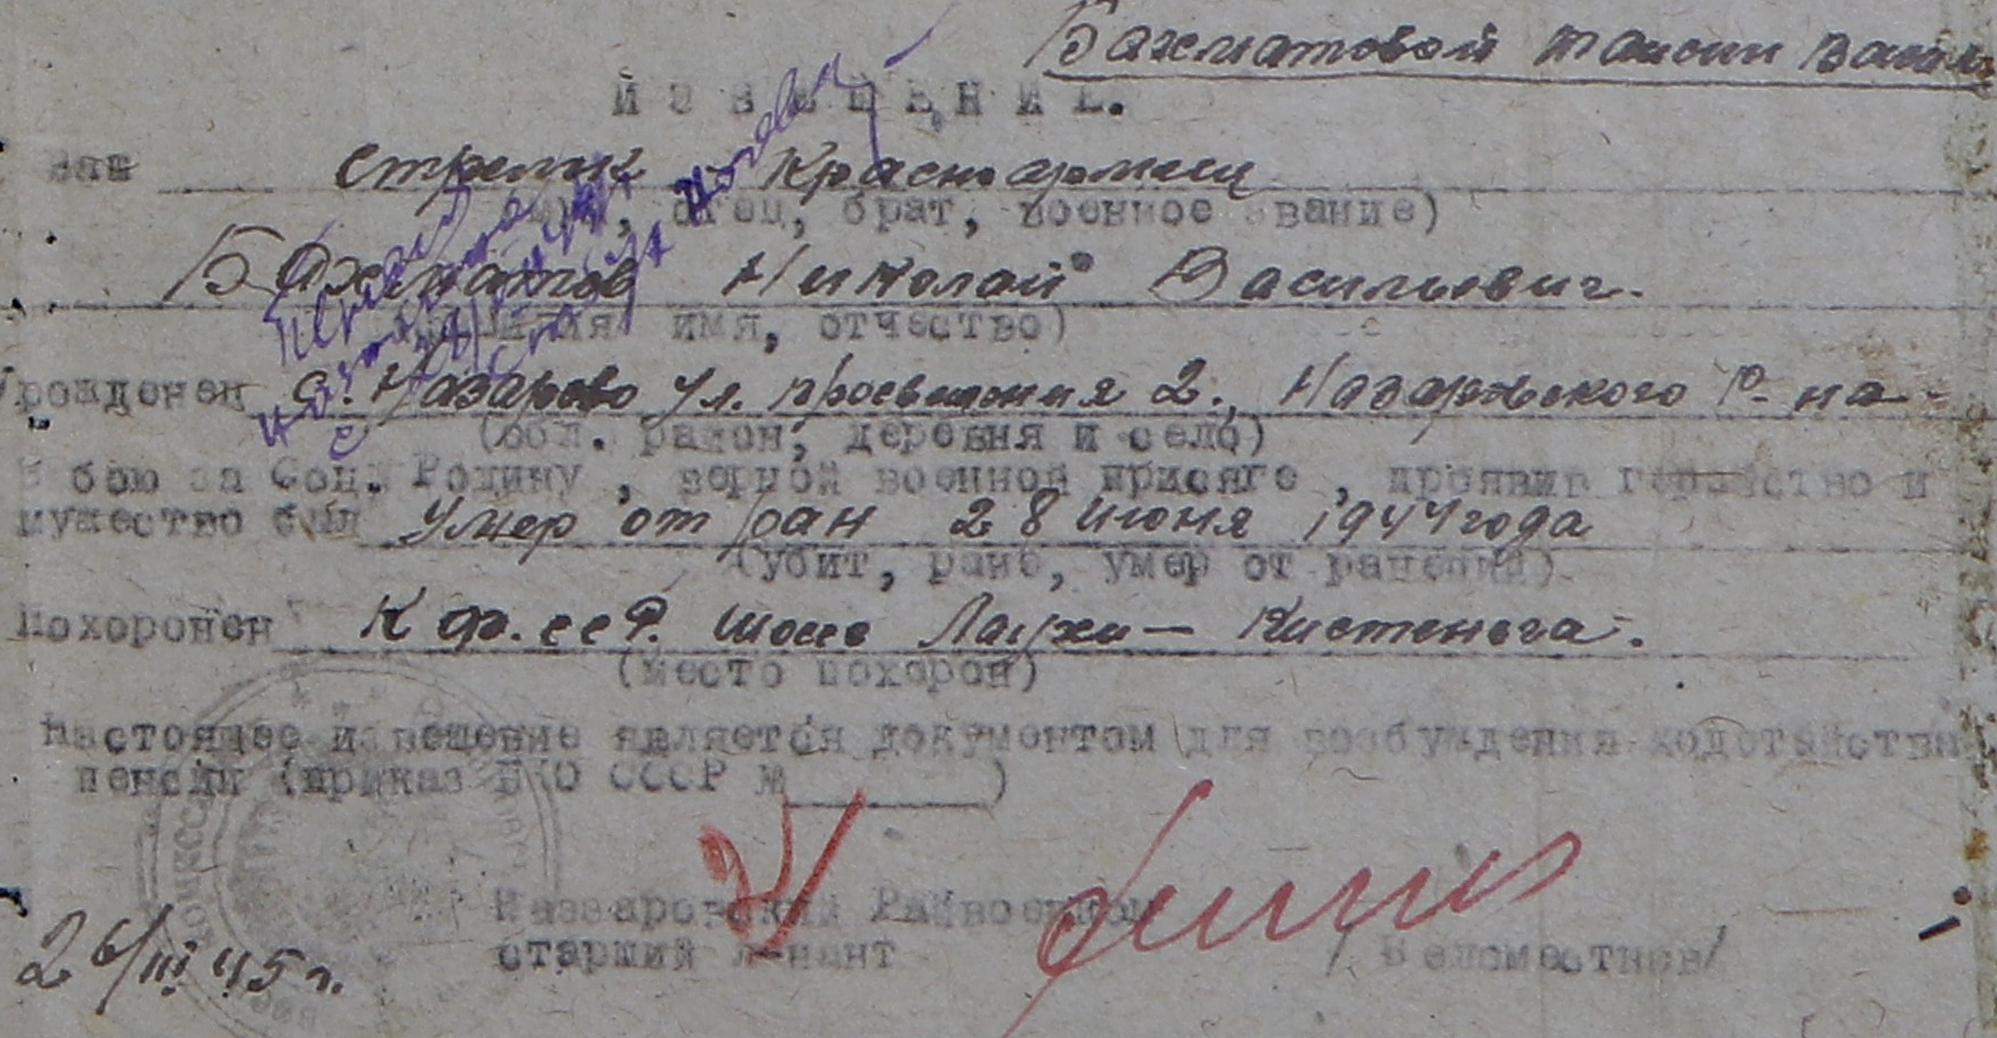 Бахматовой Таисии
ИЗВЕЩЕНИЕ.
Ваш стрелок Красноармеец
отец, брат, военное звание)
Бахматов Николай Васильевич.
имя, отчество)
Уроженец с. Назарово ул. просвещения 2., Назаровского Р-на
(обл. район, деревня и село)
В бою за Соц. Родину, верной военной присяге, проявив геройство и
мужество был Умер от ран 28 июня 1944 года
(убит, ранен, умер от ранений)
Похоронен К Ф. ССР. шоссе Лоухи – Кистеньга.
(место похорон)
Настоящее извещение является документом для возбуждения ходотайства
пенсии (приказ НКО СССР № )
Назаровский Райвоенком
старший л-нант /Беломестнов/
26/III 45 г.